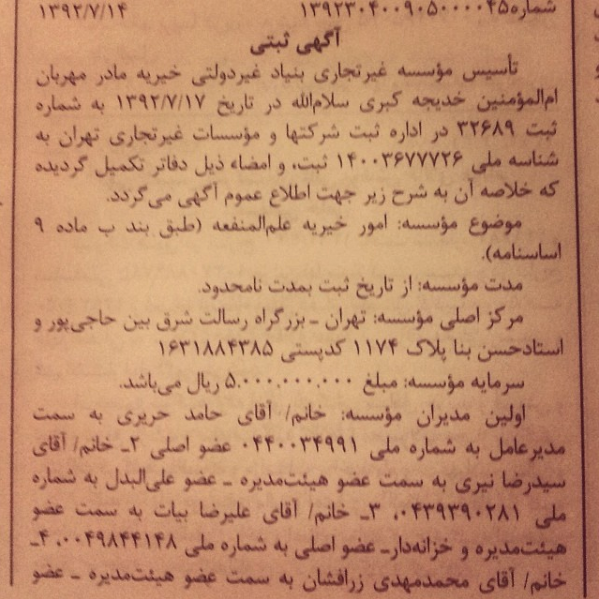 شماره۱۳۹۲۳۰۴۰۰۹۰۵۰۰۰۰۴۵ ۱۳۹۲/۷/۱۴
آگهی ثبتی
تأسیس مؤسسه غیرتجاری بنیاد غیردولتی خیریه مادر مهربان
ام‌المؤمنین خدیجه کبری سلام‌الله در تاریخ ۱۳۹۲/۷/۱۷ به شماره
ثبت ۳۲۶۸۹ در اداره ثبت شرکتها و مؤسسات غیرتجاری تهران به
شناسه ملی ۱۴۰۰۳۶۷۷۷۲۶ ثبت، و امضاء ذیل دفاتر تکمیل گردیده
که خلاصه آن به شرح زیر جهت اطلاع عموم آگهی می‌گردد.
موضوع مؤسسه: امور خیریه علم‌المنفعه (طبق بند ب ماده ۹
اساسنامه).
مدت مؤسسه: از تاریخ ثبت بمدت نامحدود.
مرکز اصلی مؤسسه: تهران ـ بزرگراه رسالت شرق بین حاجی‌پور و
استادحسن بنا پلاک ۱۱۷۴ کدپستی ۱۶۳۱۸۸۴۳۸۵
سرمایه مؤسسه: مبلغ ۵.۰۰۰.۰۰۰.۰۰۰ ریال می‌باشد.
اولین مدیران مؤسسه: خانم/ آقای حامد حریری به سمت
مدیرعامل به شماره ملی ۰۴۴۰۰۳۴۹۹۱ عضو اصلی ۲ـ خانم/ آقای
سیدرضا نیری به سمت عضو هیئت‌مدیره ـ عضو علی‌البدل به شماره
ملی ۰۴۳۹۳۹۰۲۸۱، ۳ـ خانم/ آقای علیرضا بیات به سمت عضو
هیئت‌مدیره و خزانه‌دارـ عضو اصلی به شماره ملی ۰۰۴۹۸۴۴۱۴۸، ۴ـ
خانم/ آقای محمدمهدی زرافشان به سمت عضو هیئت‌مدیره ـ عضو